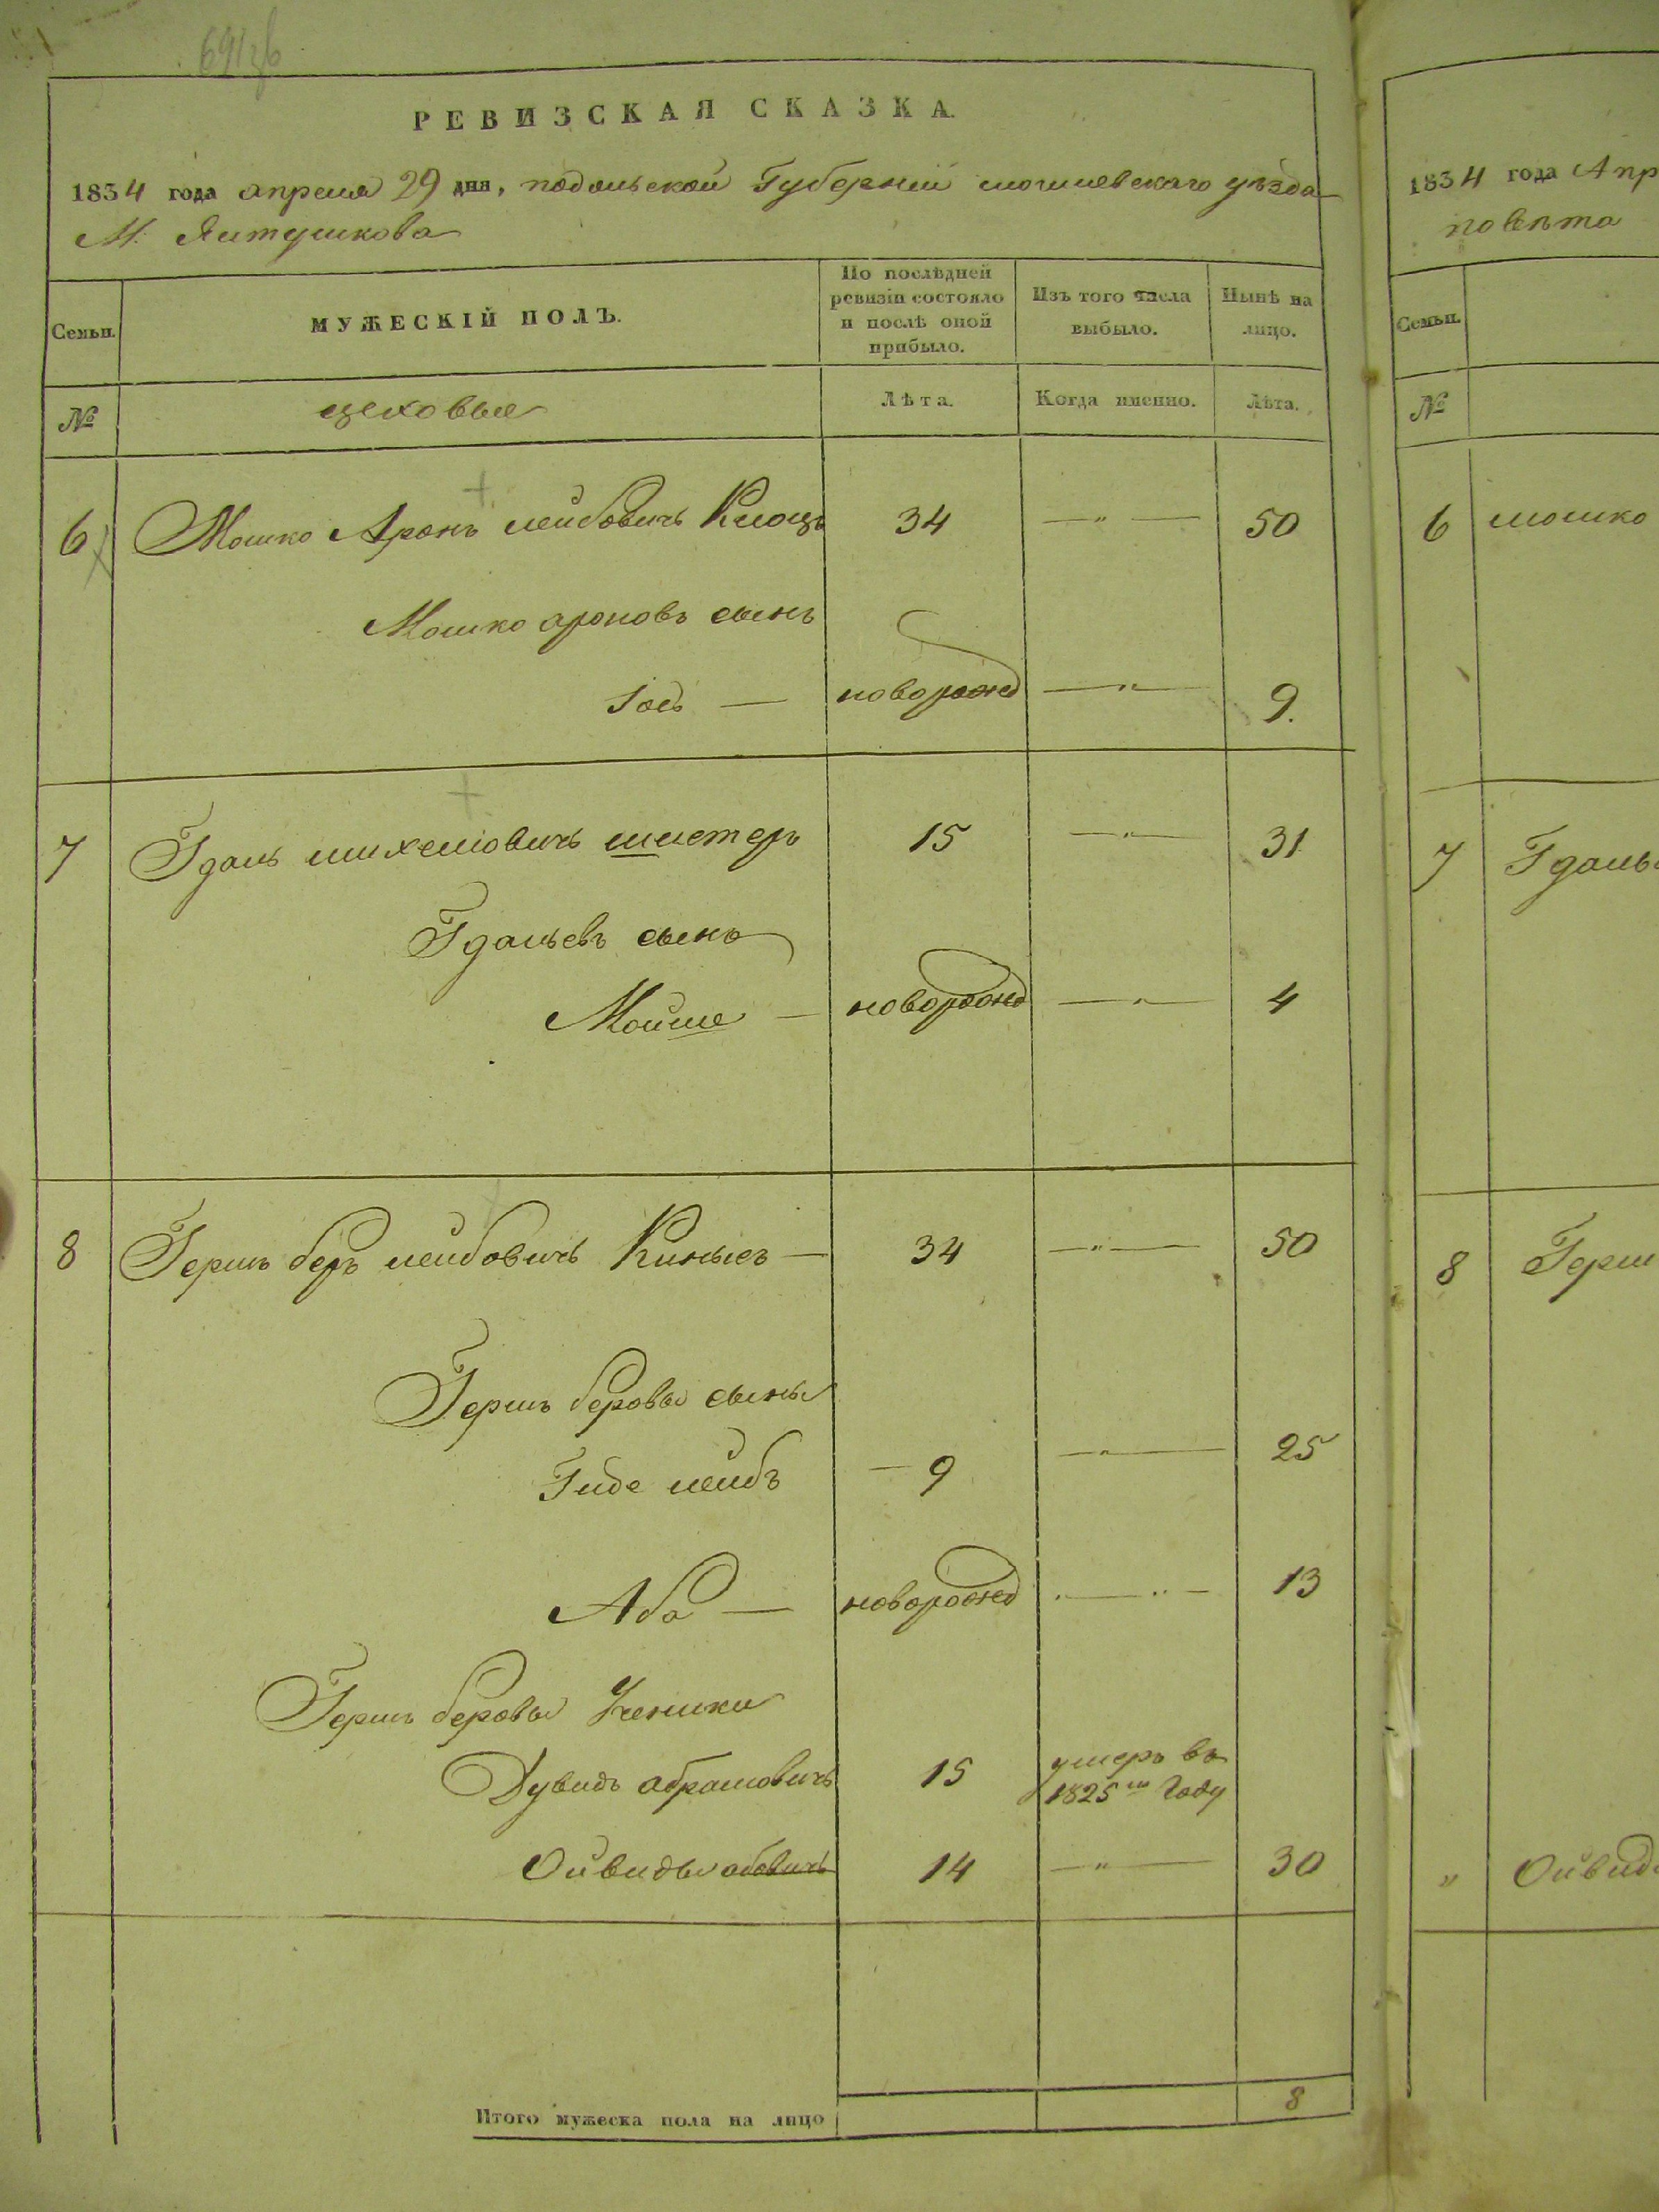 РЕВИЗСКАЯ СКАЗКА.
1834 года апреля 29 дня, подольской Губернии могилевскаго уѣзда
М. Ялтушкова
Семьи.
МУЖЕСКІЙ ПОЛЪ.
По послѣдней
ревизіи состояло
и послѣ оной
прибыло.
Изъ того числа
выбыло.
Нынѣ на
лицо.
№
цеховые
Лѣта.
Когда именно.
Лѣта.
6 Мошко Аронъ лейбовичъ Клоцъ 34 — „ — 50
Мошко ароновъ сынъ
Іось — новорожд — „ — 9.
7 Гдаль михелювичъ шистеръ 15 — „ — 31
Гдальевъ сынъ
Мойше — новорожд — „ — 4
8 Гершъ беръ лейбовичъ — 34 — „ — 50
Гершъ беровы сыны
лейбъ — 9 — „ — 25
Аба — новорожд — „ — 13
Гершъ беровы Ученики
Дувидъ абрамовичъ 15 умеръ въ
1825м Году
абовичъ 14 — „ — 30
Итого мужеска пола на лицо 8
1834 года Апр
повѣта
Семьи.
№
6 мошко
7 Гдаль
8 Герш
„ Ойвид